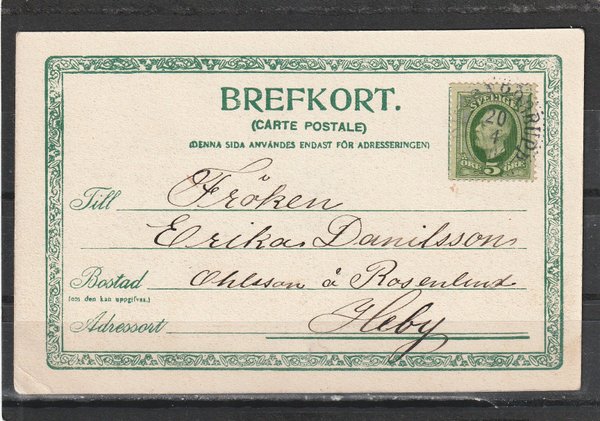 BREFKORT.
(CARTE POSTALE)
(DENNA SIDA ANVÄNDES ENDAST FÖR ADRESSERINGEN)
SVERIGE
20
4
ÖRE 5 ÖRE
Till Fröken
Erika Danilsson
Bostad Ohlsson å Rosenlund
(om den kan uppgifvas.)
Adressort Heby